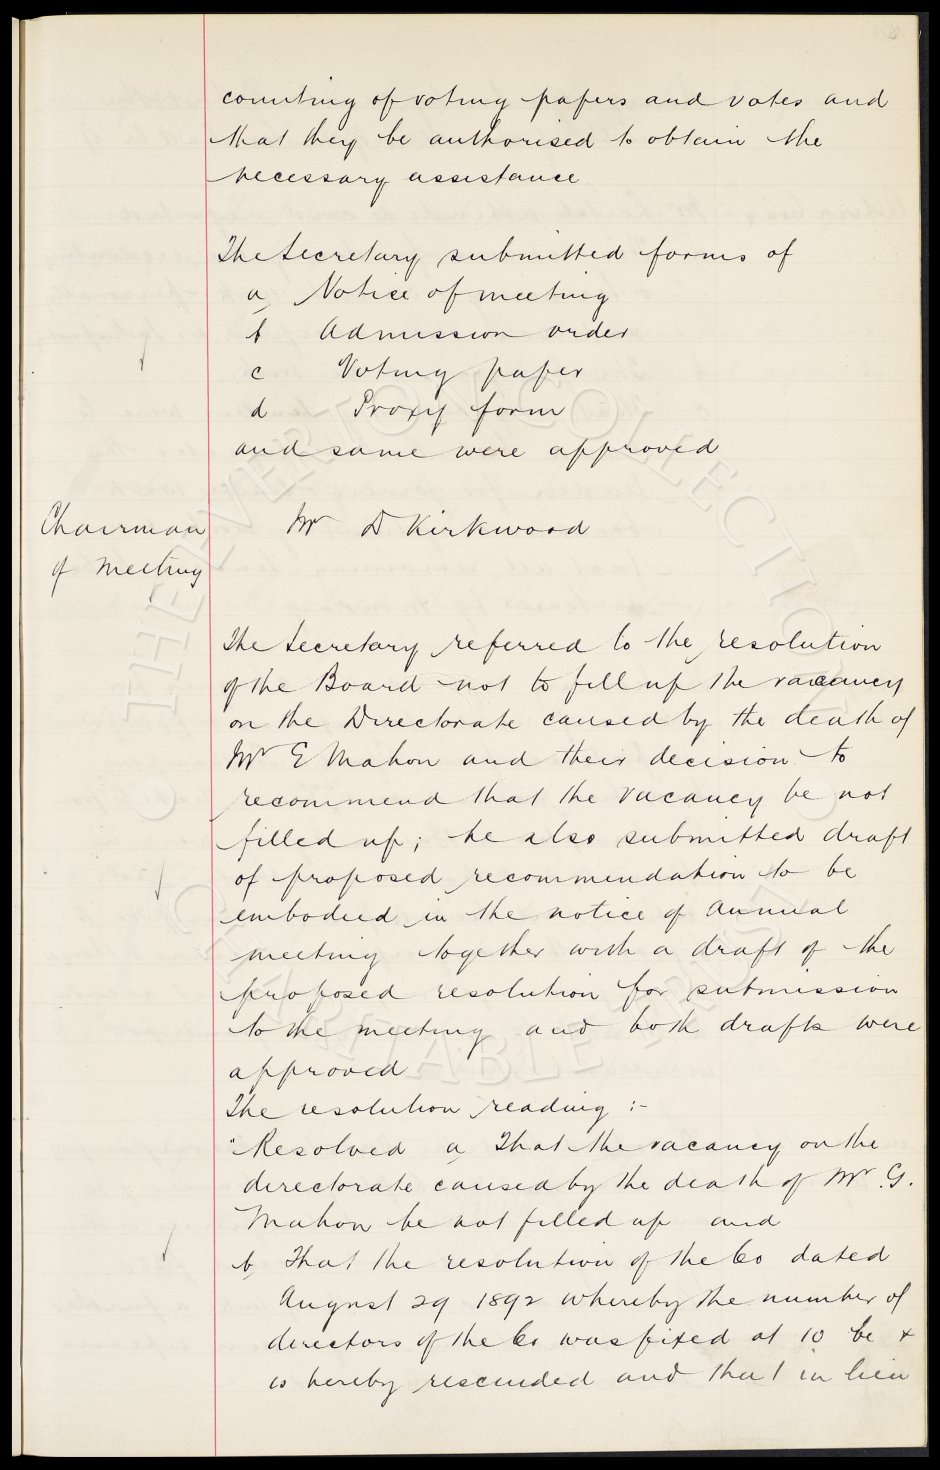 counting of voting papers and votes and
that they be authorised to obtain the
necessary assistance
The Secretary submitted forms of
a Notice of meeting
b Admission order
c Voting paper
d Proxy form
and same were approved
Chairman
of meeting
Mr D Kirkwood
The Secretary referred to the resolution
of the Board not to fill up the vacancy
on the Directorate caused by the death of
Mr G Mahon and their decision to
recommend that the vacancy be not
filled up; he also submitted draft
of proposed recommendation to be
embodied in the notice of Annual
meeting together with a draft of the
proposed resolution for submission
to the meeting and both drafts were
approved
The resolution reading :-
"Resolved a That the vacancy on the
directorate caused by the death of Mr G.
Mahon be not filled up and
b That the resolution of the Co dated
August 29 1892 whereby the number of
directors of the Co was fixed at 10 be &
is hereby rescinded and that in lieu
THE HEVERSTON COLLECTION